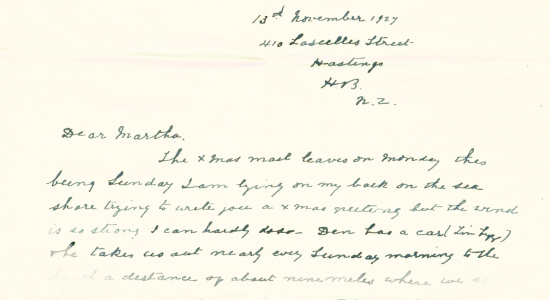 13rd November 1927
410 Lascelles Street
Hastings
H.B.
N.Z.
Dear Martha.
The Xmas mail leaves on Monday this
being Sunday I am lying on my back on the sea
shore trying to write you a Xmas greeting but the wind
is so strong I can hardly do so - Den has a car (Tin Lizz)
& he takes us out nearly every Sunday morning to the
beach a distance of about nine miles where we